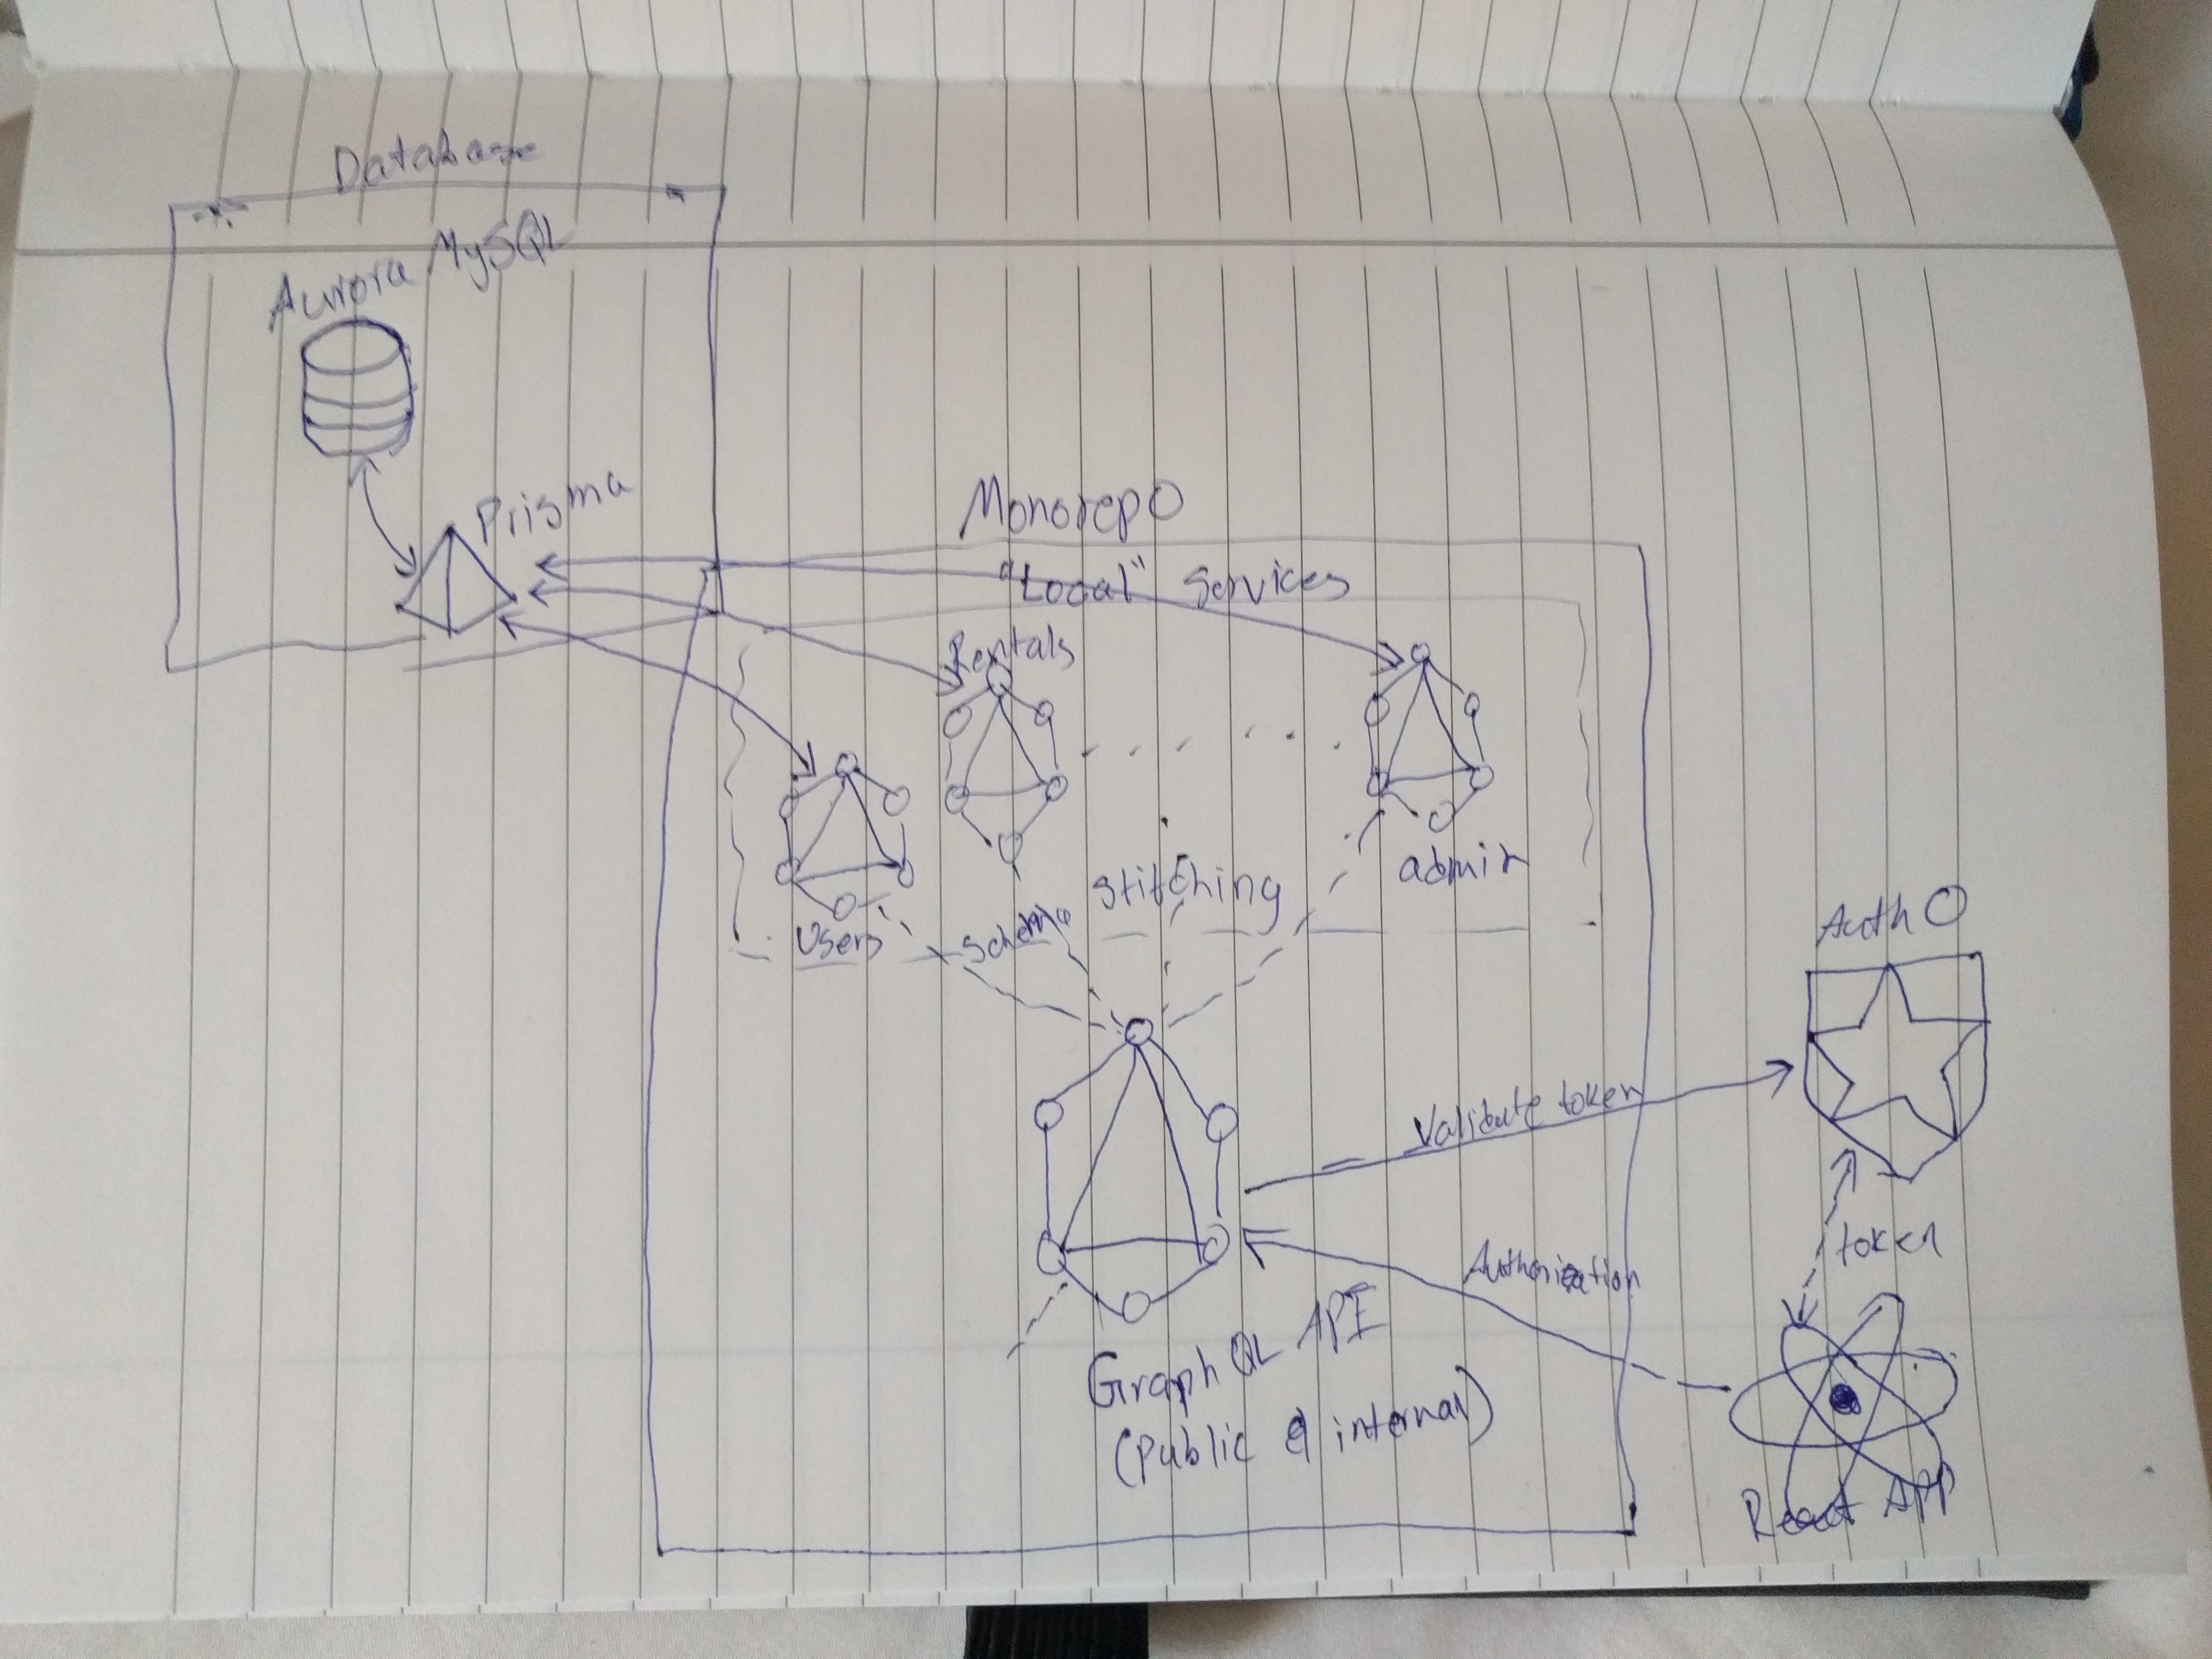 Database
Aurora MySQL
Prisma
Monorepo
"Local" Services
Rentals
Users
admin
Schema Stitching
Auth0
Validate token
token
Authorization
GraphQL API
(Public & internal)
React APP